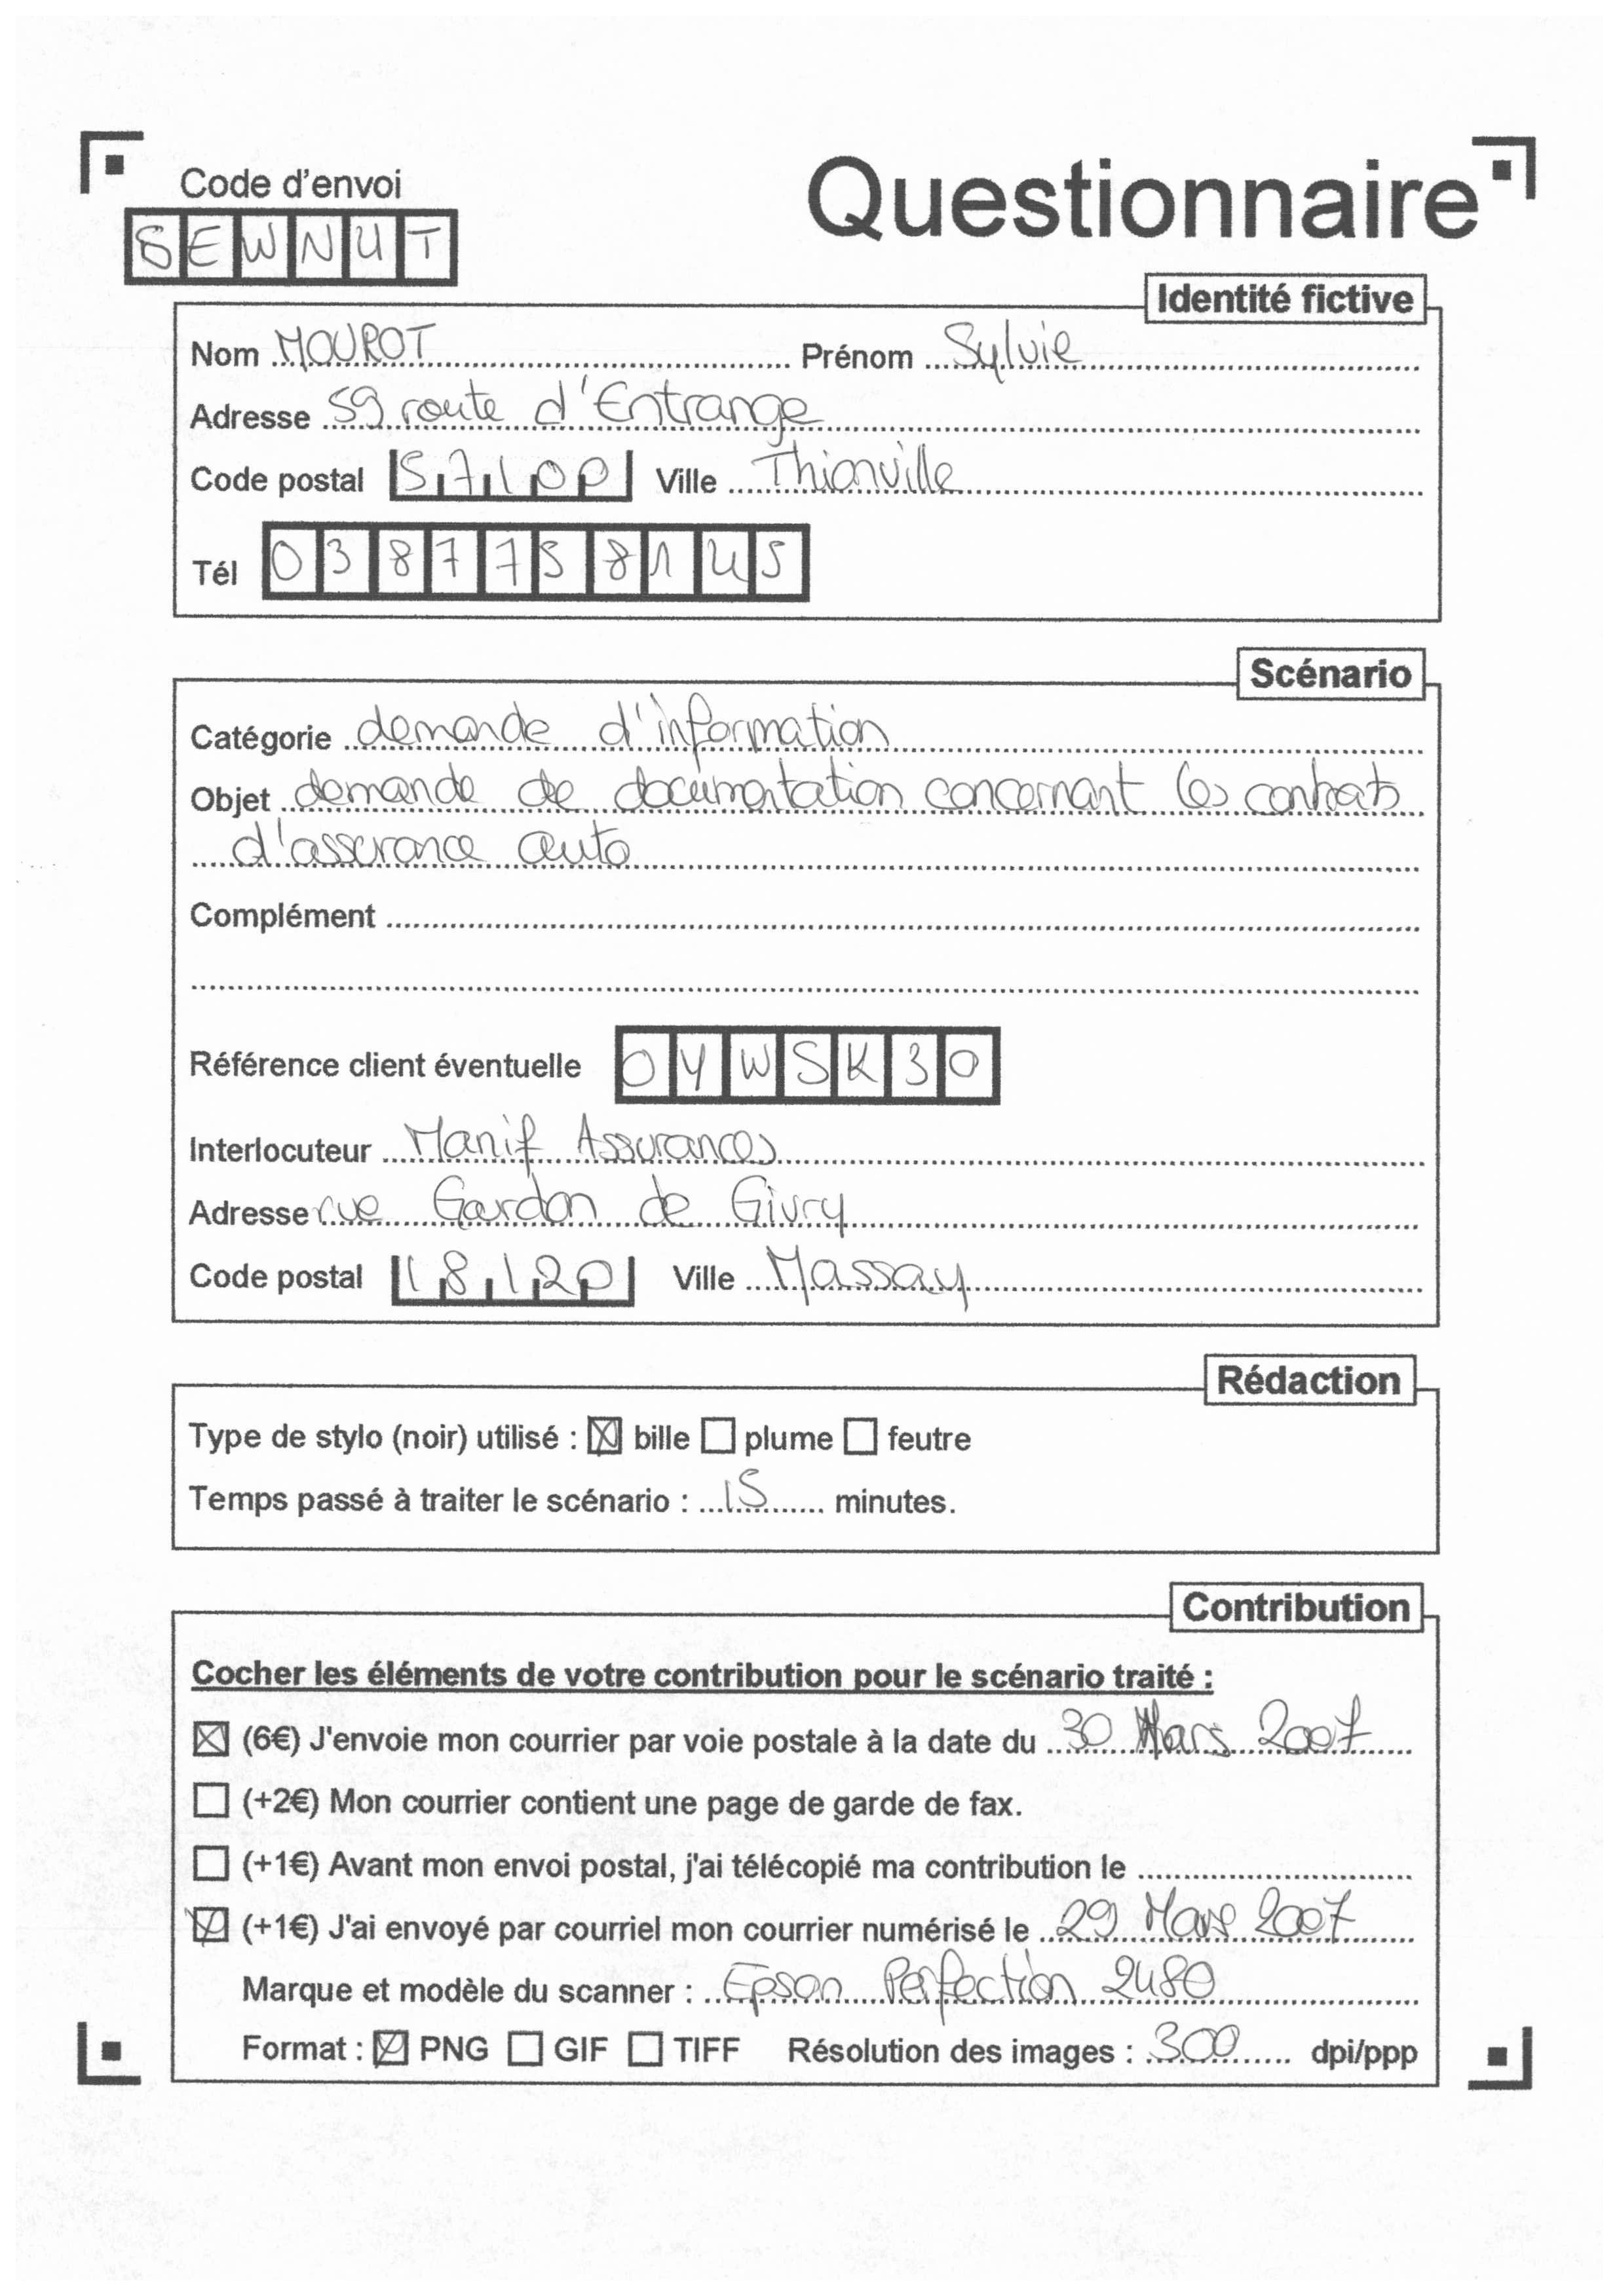 Code d'envoi
Questionnaire
SEWNUT
Identité fictive
Nom MOUROT Prénom Sylvie
Adresse 59 route d'Entrange
Code postal 57100 Ville Thionville
Tél 0387758145
Scénario
Catégorie demande d'information
Objet demande de documentation concernant les contrats
d'assurance auto
Complément
Référence client éventuelle OYWSK30
Interlocuteur Manif Assurances
Adresse rue Gardon de Givry
Code postal 18120 Ville Massay
Rédaction
Type de stylo (noir) utilisé : ☒ bille ☐ plume ☐ feutre
Temps passé à traiter le scénario : 15 minutes.
Contribution
Cocher les éléments de votre contribution pour le scénario traité :
☒ (6€) J'envoie mon courrier par voie postale à la date du 30 Mars 2007
☐ (+2€) Mon courrier contient une page de garde de fax.
☐ (+1€) Avant mon envoi postal, j'ai télécopié ma contribution le
☒ (+1€) J'ai envoyé par courriel mon courrier numérisé le 29 Mars 2007
Marque et modèle du scanner : Epson Perfection 2480
Format : ☒ PNG ☐ GIF ☐ TIFF Résolution des images : 300 dpi/ppp